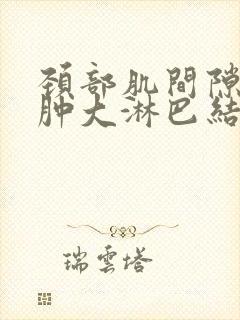 頚部肌間隙
肿大淋巴結
瑞雲塔